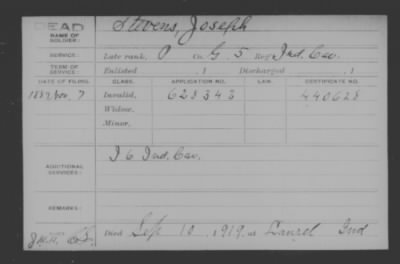 DEAD
NAME OF SOLDIER: Stevens, Joseph
SERVICE: Late rank, P Co. G. 5 Reg't Ind. Cav.
TERM OF SERVICE: Enlisted , 1 Discharged , 1
DATE OF FILING. CLASS. APPLICATION NO. LAW. CERTIFICATE NO.
1887 Nov. 7 Invalid, 628343 440628
Widow,
Minor,
ADDITIONAL SERVICES: I 6 Ind. Cav.
REMARKS:
Died Sep 10, 1919, at Laurel Ind